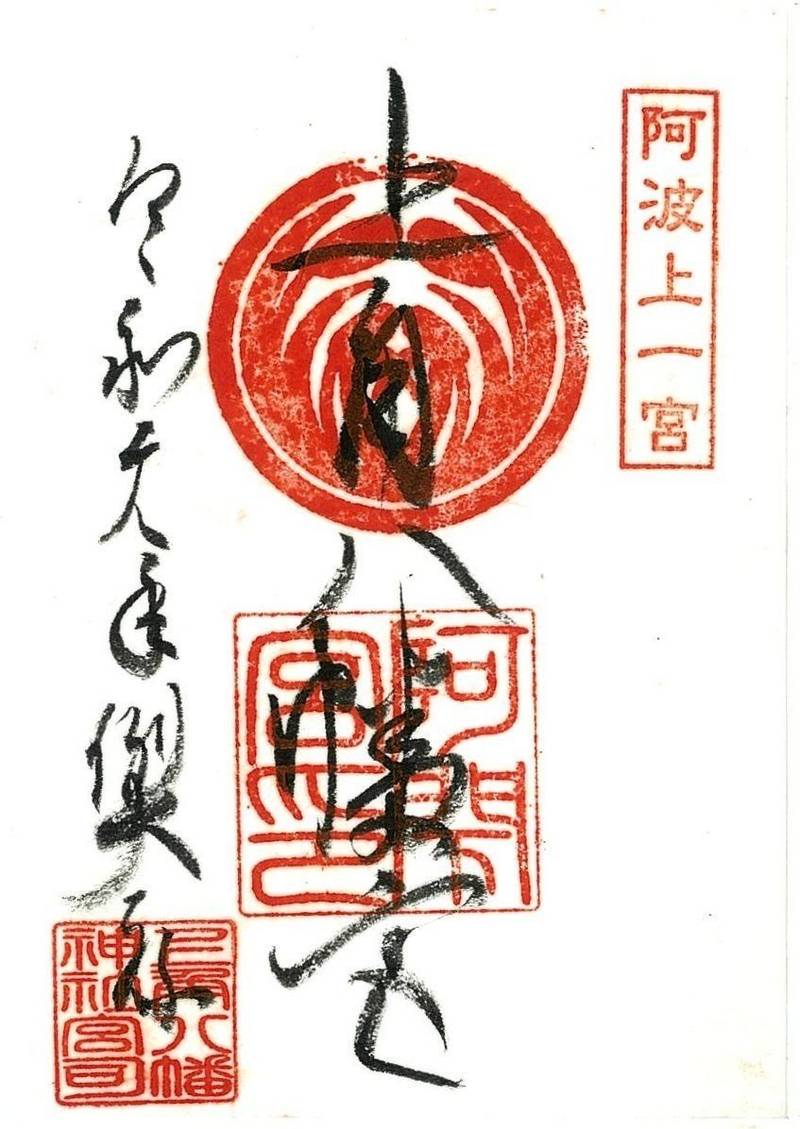 阿波上一宮
上角八幡宮
令和元年
上角八幡
神社宮司